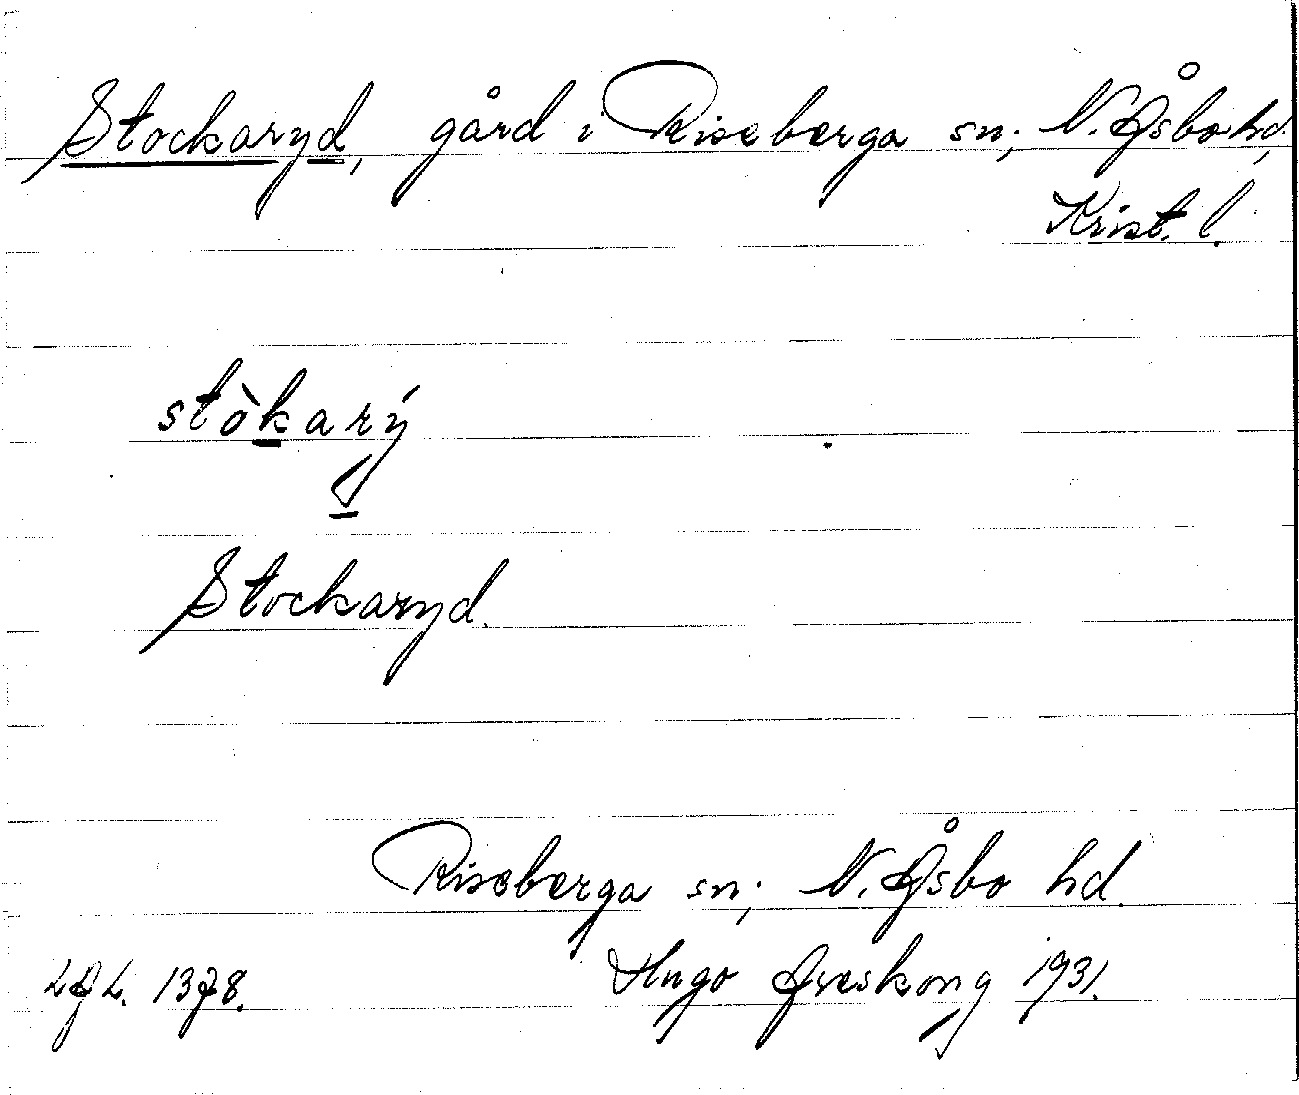 Stockaryd, gård i Riseberga sn; N. Åsbo hd,
Krist. l.
stòkarý
Stockaryd.
Riseberga sn; N. Åsbo hd.
Hugo Areskoug 1931.
LAL. 1378.